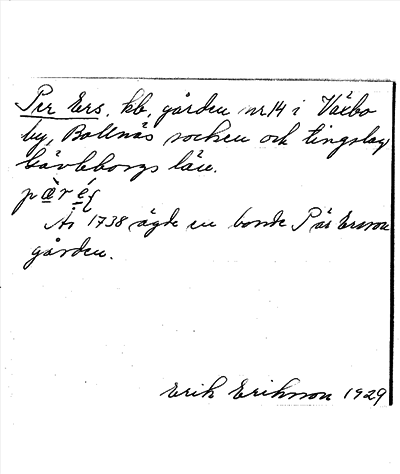 Per Ers, kb, gården nr 14 i Växbo
by, Bollnäs socken och tingslag
Gävleborgs län.
pæ̀ré
År 1738 ägde en bonde Pär Ersson
gården.
Erik Eriksson 1929